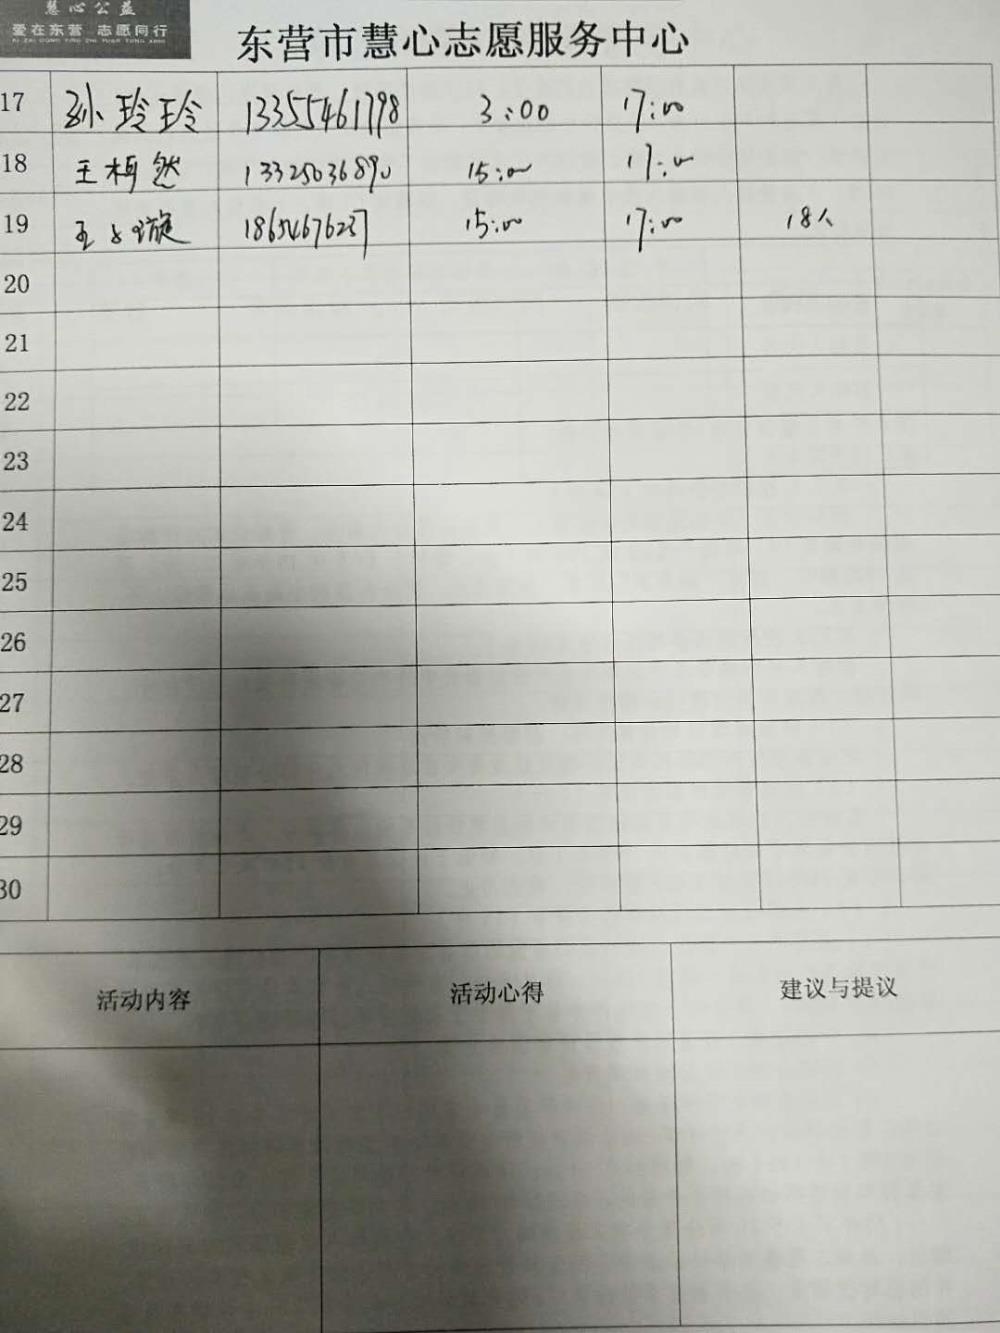 慧心公益
爱在东营 志愿同行
AI ZAI DONG YING ZHI YUAN TONG XING
东营市慧心志愿服务中心
17 孙玲玲 13355461798 3:00 17:00
18 王柯然 13325036890 15:00 17:00
19 18654676227 15:00 17:00 18人
20
21
22
23
24
25
26
27
28
29
30
活动内容 活动心得 建议与提议